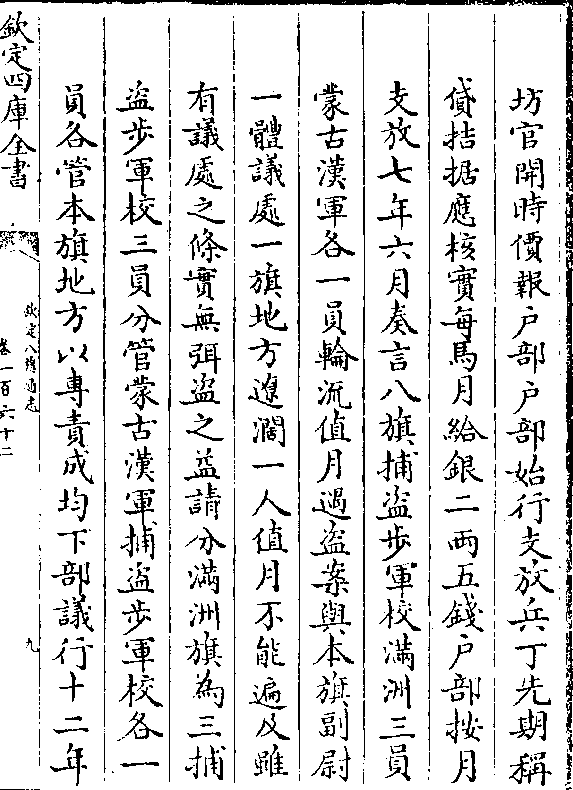 坊官開時價報户部户部始行支放兵丁先期稱
貸拮据應核實每馬月給銀二兩五錢户部按月
支放七年六月奏言八旗捕盗步軍校滿洲三員
蒙古漢軍各一員輪流值月遇盗案與本旗副尉
一體議處一旗地方遼濶一人值月不能遍及雖
有議處之條實無弭盗之益請分滿洲旗為三捕
盗步軍校三員分管蒙古漢軍捕盗步軍校各一
員各管本旗地方以專責成均下部議行十二年
欽定四庫全書
欽定八旗通志
卷一百六十二
九